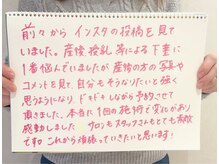 前々から インスタの投稿を見て
いました。産後、授乳等による下垂に
1番悩んでいましたが 産後の方の写真や
コメントを見て、自分もそうなりたいと強く
思うようになり ドキドキしながら予約させて
頂きました。本当に1回の施術で変化があり
感動しました サロンもスタッフさんもとても素敵
です♡ これから頑張っていきたいと思います!